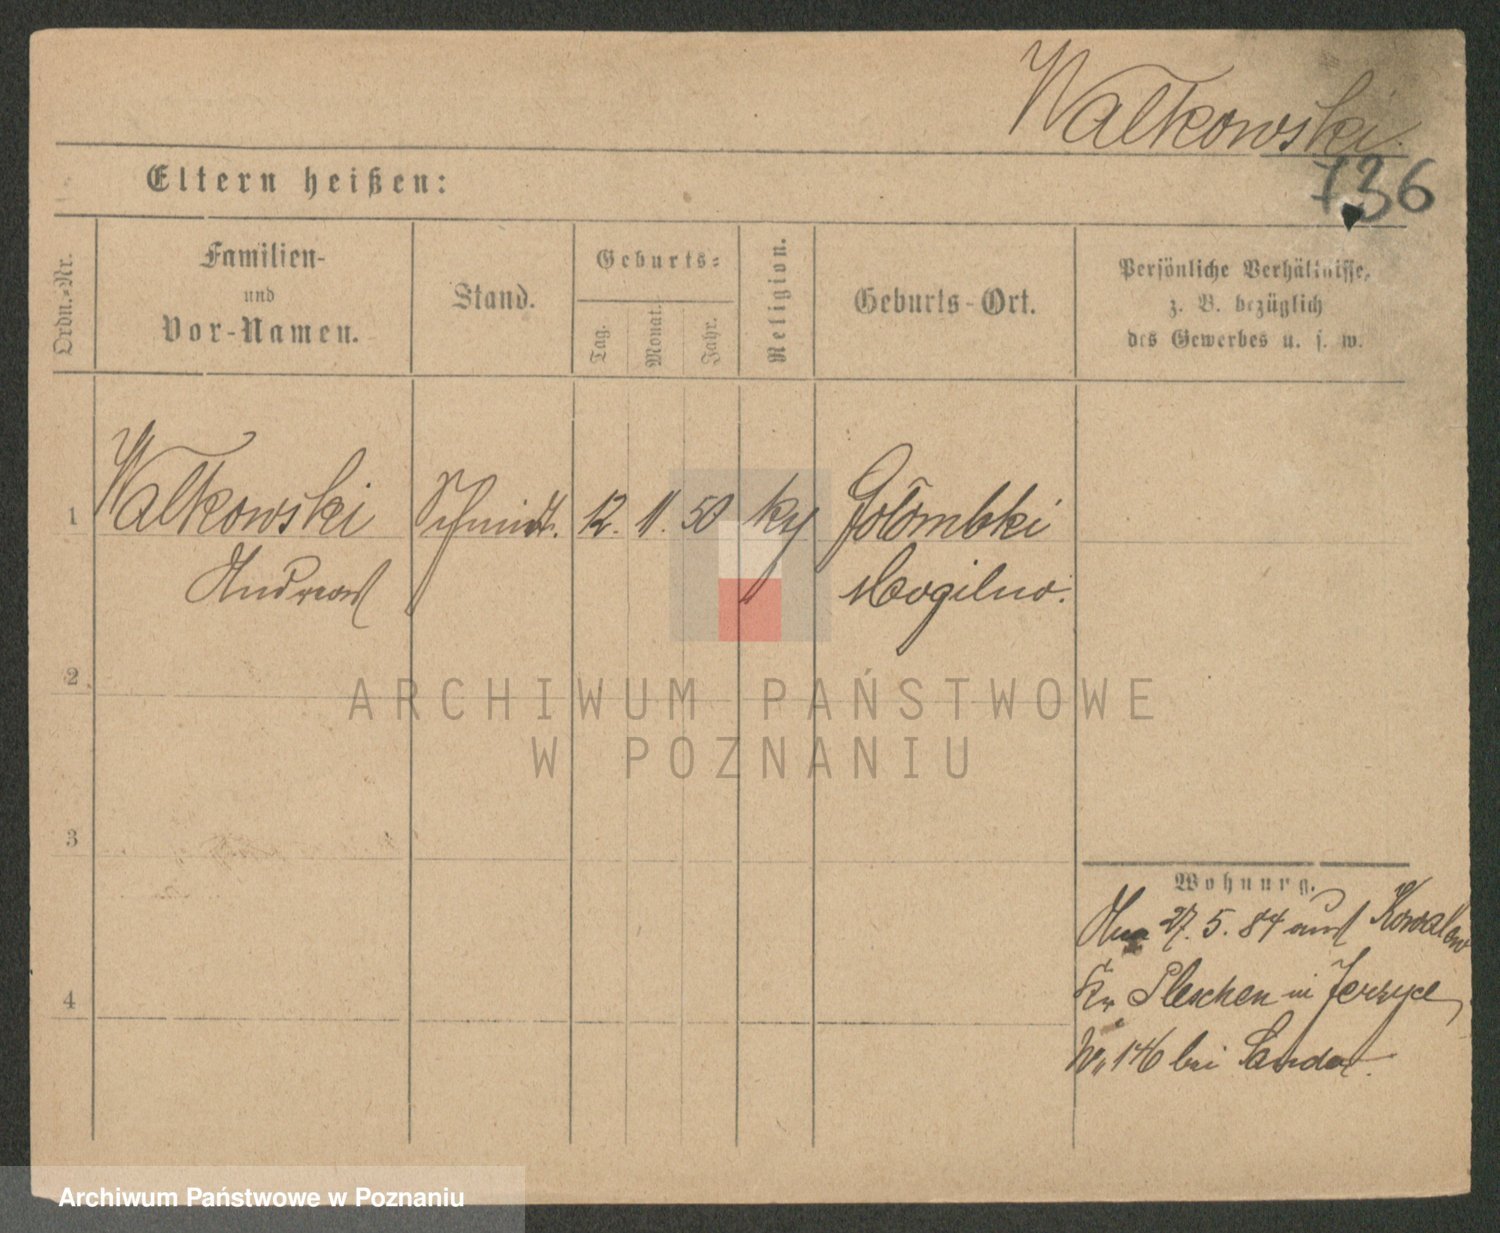 Walkowski
736
Eltern heißen:
Ordn.-Nr.
Familien-
und
Vor-Namen.
Stand.
Geburts-
Tag.
Monat.
Jahr.
Religion.
Geburts-Ort.
Persönliche Verhältnisse,
z. B. bezüglich
des Gewerbes u. s. w.
1 Walkowski Schmidt. 12. 11. 50 Gołombki
Andreas Mogilno.
2
ARCHIWUM PAŃSTWOWE
W POZNANIU
3
Wohnung.
27. 5. 84 aus Kowalew
Kr Pleschen in Jerzyce
No 146 bei Sander.
4
Archiwum Państwowe w Poznaniu